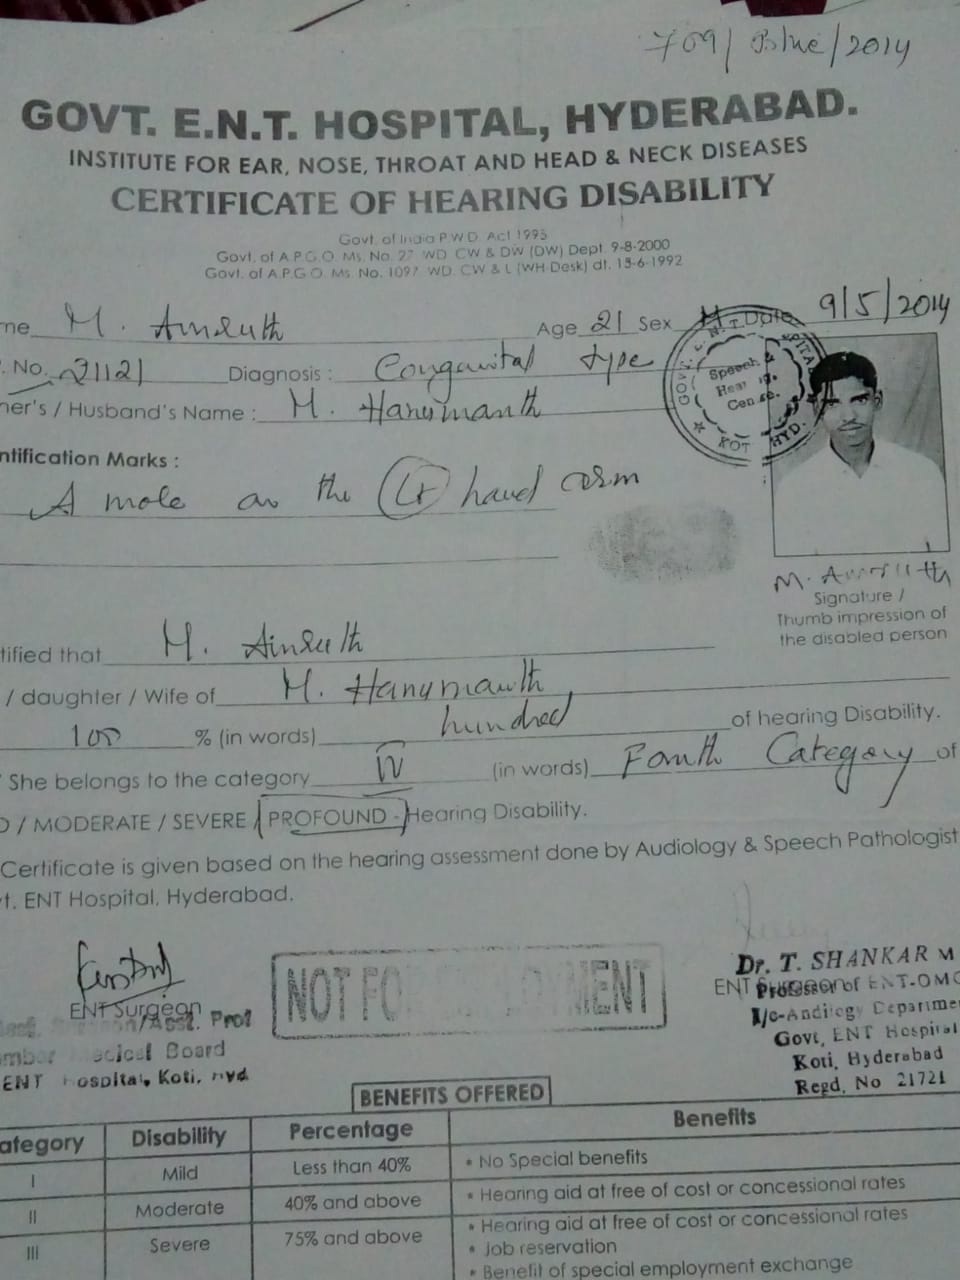 709/ Blue/2014
GOVT. E.N.T. HOSPITAL, HYDERABAD.
INSTITUTE FOR EAR, NOSE, THROAT AND HEAD & NECK DISEASES
CERTIFICATE OF HEARING DISABILITY
Govt. of India P.W.D. Act 1995
Govt. of A.P.G.O. Ms. No. 27 WD. CW & DW (DW) Dept. 9-8-2000
Govt. of A.P.G.O. Ms. No. 1097 WD. CW & L (WH-Desk) dt. 15-6-1992
me M. Amruth Age 21 Sex M Date 9/5/2014
. No. 21121 Diagnosis : Conganital type
her's / Husband's Name : M. Hanumanth
Speech &
Cen
KOT HYD.
ntification Marks :
A mole on the Lt hand arm
M. Amruth
Signature /
Thumb impression of
the disabled person
tified that M. Amruth
/ daughter / Wife of M. Hanumanth
100 % (in words) hundred of hearing Disability.
She belongs to the category IV (in words) Fourth Category of
D / MODERATE / SEVERE / PROFOUND - Hearing Disability.
Certificate is given based on the hearing assessment done by Audiology & Speech Pathologist
t. ENT Hospital, Hyderabad.
NOT FO MENT
ENT Surgeon
/Asst. Prof
Board
ENT Hospital, Koti, Hyd.
Dr. T. SHANKAR M
ENT Surgeon
Professor of ENT-OMC
I/c-Andilogy Departme
Govt, ENT Hospital
Koti, Hyderabad
Regd, No 21721
BENEFITS OFFERED
ategory Disability Percentage Benefits
I Mild Less than 40% • No Special benefits
II Moderate 40% and above • Hearing aid at free of cost or concessional rates
III Severe 75% and above • Hearing aid at free of cost or concessional rates
• Job reservation
• Benefit of special employment exchange